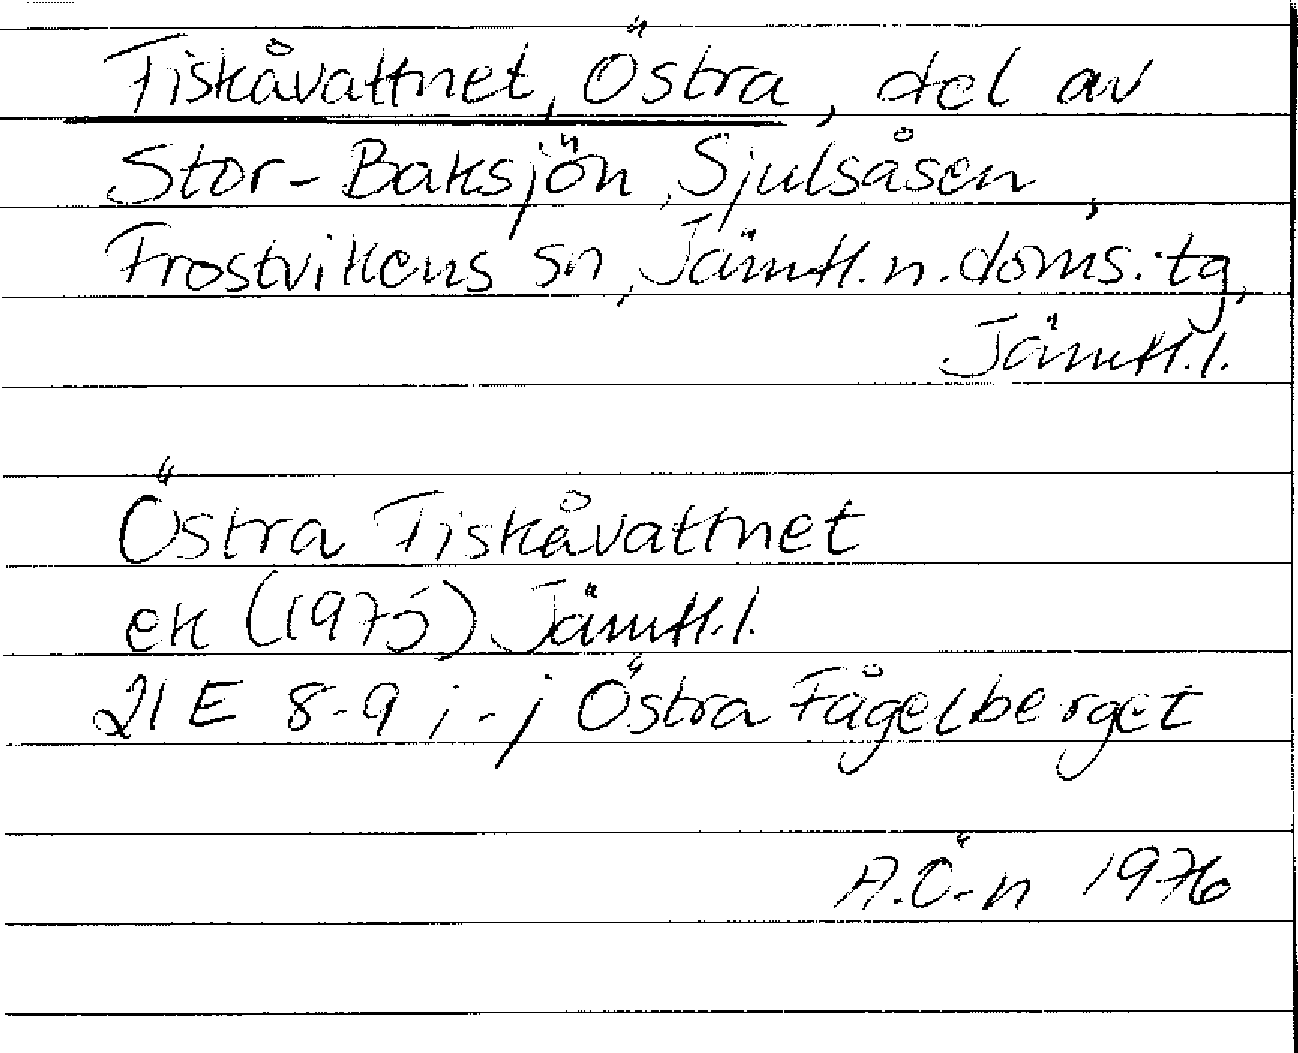 Fiskåvattnet, Östra, del av
Stor-Baksjön, Sjulsåsen,
Frostvikens sn, Jämtl. n. doms. tg,
Jämtl. l.
Östra Fiskåvattnet
ek (1975) Jämtl. l.
21 E 8-9 i-j Östra Fågelberget
A.Ö-n 1976